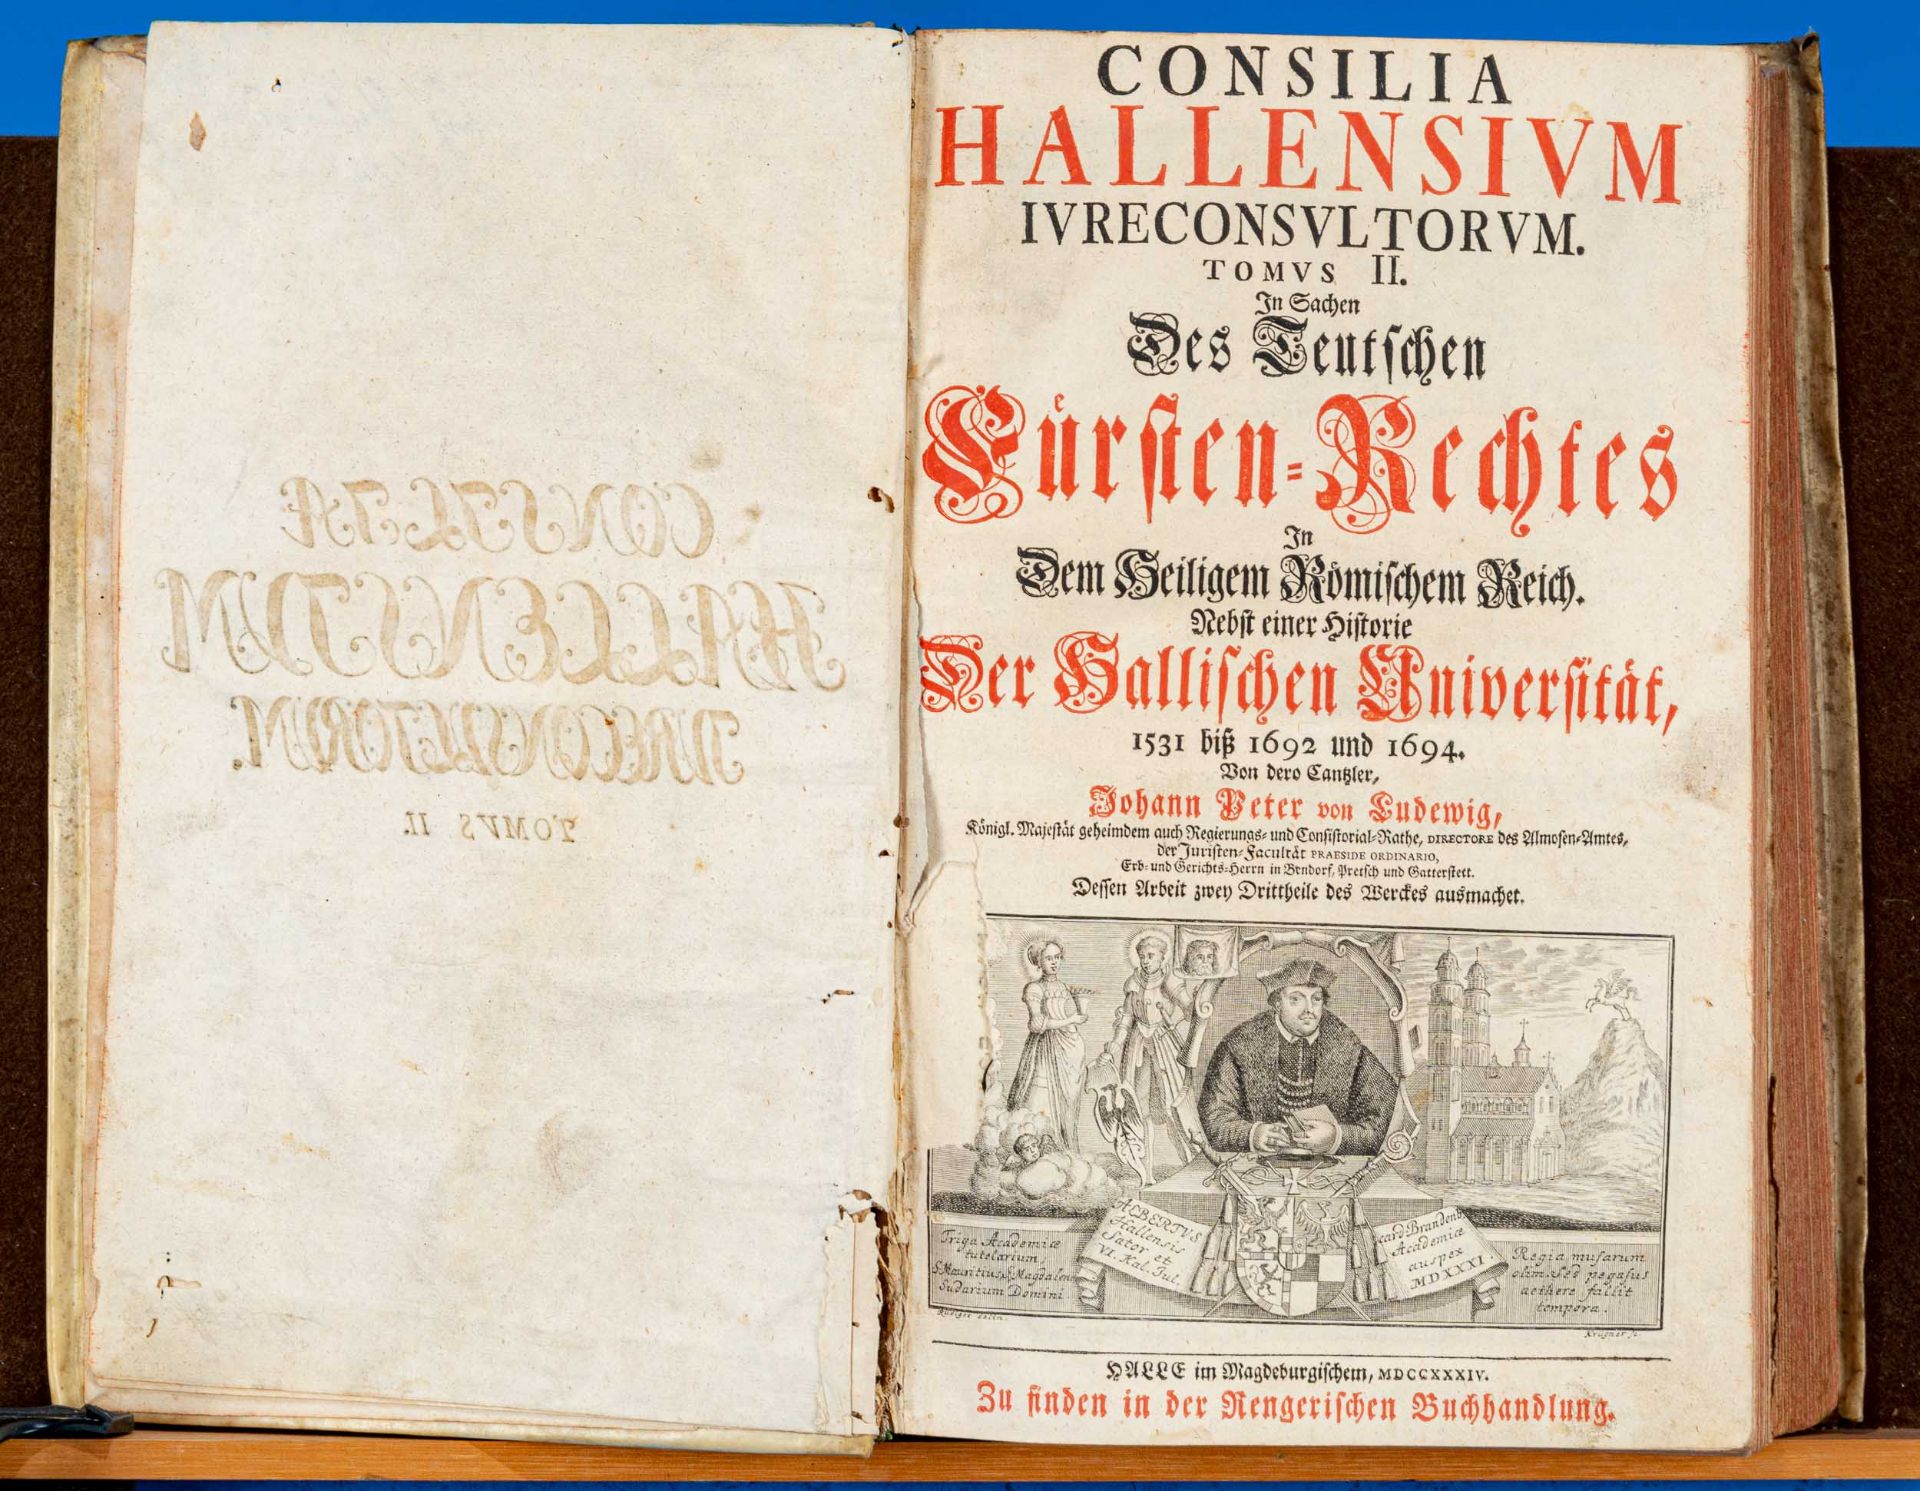 CONSILIA
HALLENSIVM
IVRECONSVLTORVM.
TOMVS II.
CONSILIA
HALLENSIVM
IVRECONSVLTORVM.
TOMVS II.
In Sachen
Des Teutschen
Fürsten-Rechtes
In
Dem Heiligem Römischem Reich.
Nebst einer Historie
Der Hallischen Universität,
1531 biß 1692 und 1694.
Von dero Cantzler,
Johann Peter von Ludewig,
Königl. Majestät geheimdem auch Regierungs- und Consistorial-Rathe, DIRECTORE des Almosen-Amtes,
der Juristen-Facultät PRAESIDE ORDINARIO,
Erb- und Gerichts-Herrn in Bendorf, Pretsch und Gatterstett.
Dessen Arbeit zwey Drittheile des Werckes ausmachet.
Triga Academiæ
tutelarium
S. Mauritius, S. Magdalena
Sudarium Domini
ALBERTVS
Hallensis
Sator et
VI. Kal. Jul.
card Brandenb
Academiæ
auspex
MDXXXI.
Regia musarum
olim. Sed pegasus
aethere fallit
tempora.
Rüdiger delin.
Krügner sc
HALLE im Magdeburgischem, MDCCXXXIV.
Zu finden in der Rengerischen Buchhandlung.